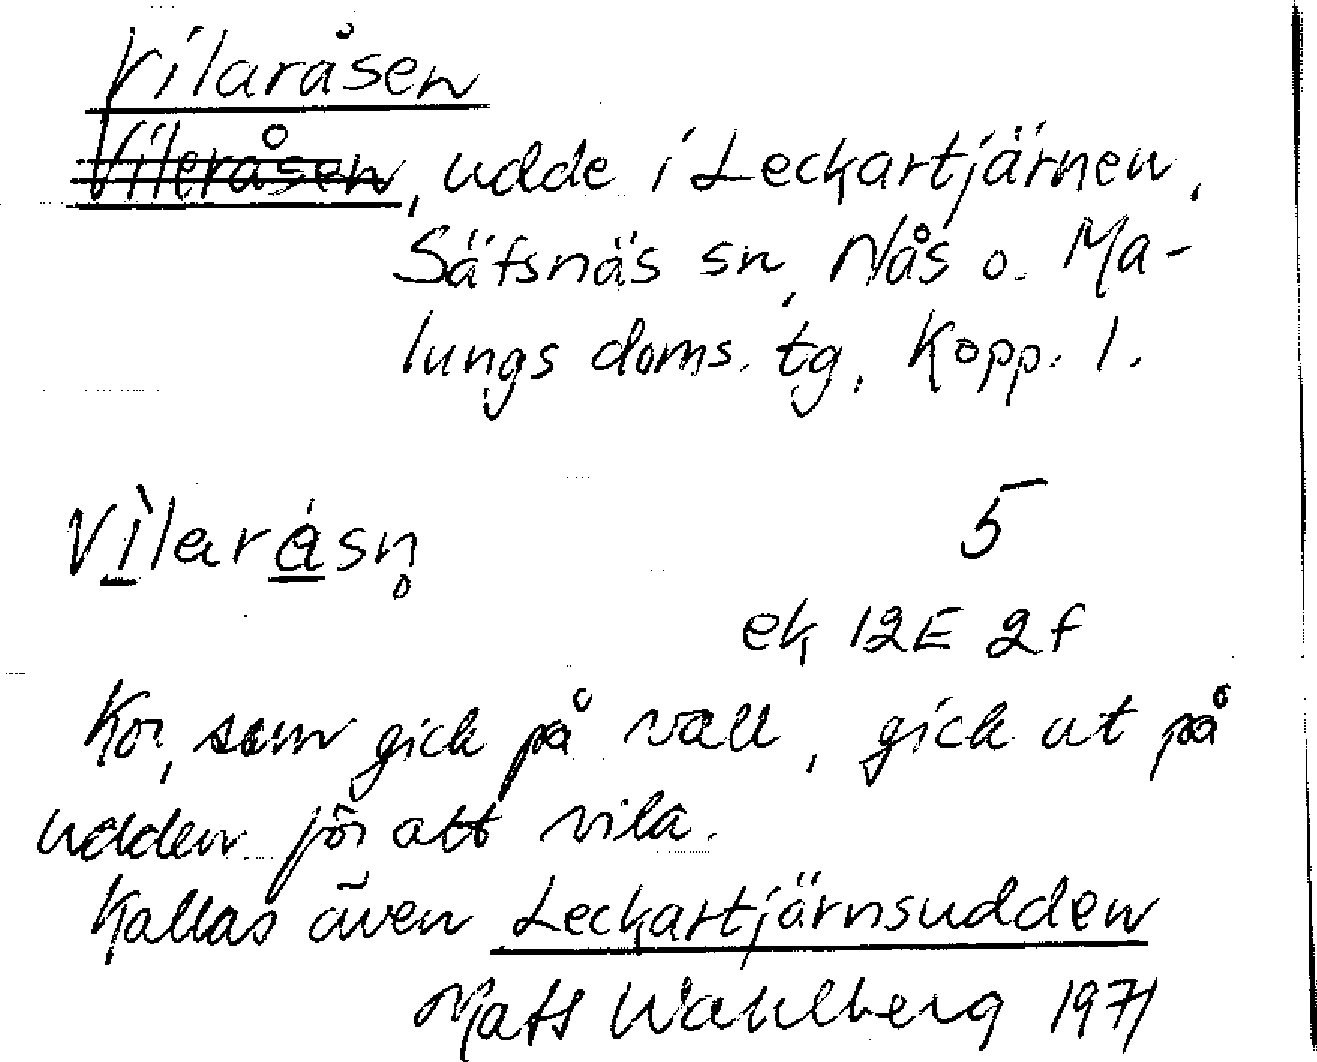 Vilaråsen
Vileråsen, udde i Leckartjärnen,
Säfsnäs sn, Nås o. Ma-
lungs doms. tg, Kopp. l.
Vìlaråsn̥
5
ek 12E 2f
Kor, som gick på vall, gick ut på
udden för att vila.
Kallas även Leckartjärnsudden
Mats Wahlberg 1971